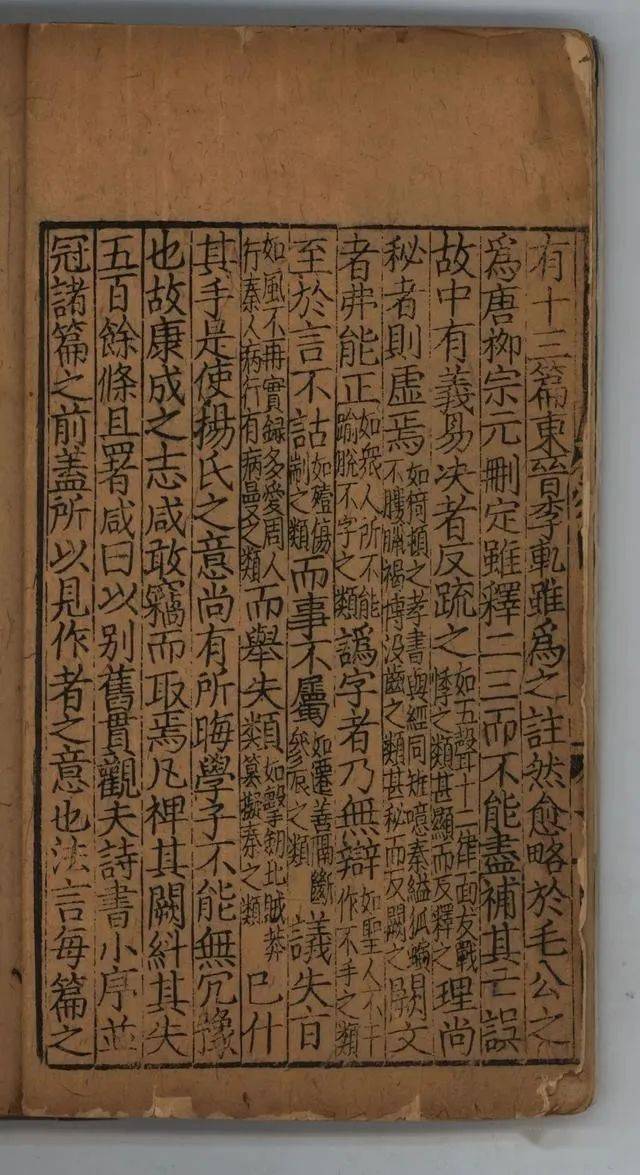 有十三篇東晉李軌雖爲之註然愈略於毛公之
爲唐栁宗元刪定雖釋二三而不能盡補其亡誤
故中有義易决者反疏之如五聲十二律面友戰悸之類甚顯而反釋之理尚
秘者則虛焉如倚頓之孝書與經同矩噫秦縊狐不膢臘褐博没齒之類甚秘而反闕之文
者弗能正如衆人所不能踰脫不字之類譌字者乃無辯如聖人不干作不手之類
至於言不詁如殪傷制之類而事不屬如遷善隔斷參辰之類議失旨
如風不再實録多愛周人行秦人病行有病曼之類而舉失類如擊北賊莽篡擬秦之類巳什
其手是使揚氏之意尚有所晦學子不能無宂豫
也故康成之志咸敢竊而取焉凡裨其闕糾其失
五百餘條且署咸曰以别舊貫觀夫詩書小序並
冠諸篇之前蓋所以見作者之意也法言每篇之